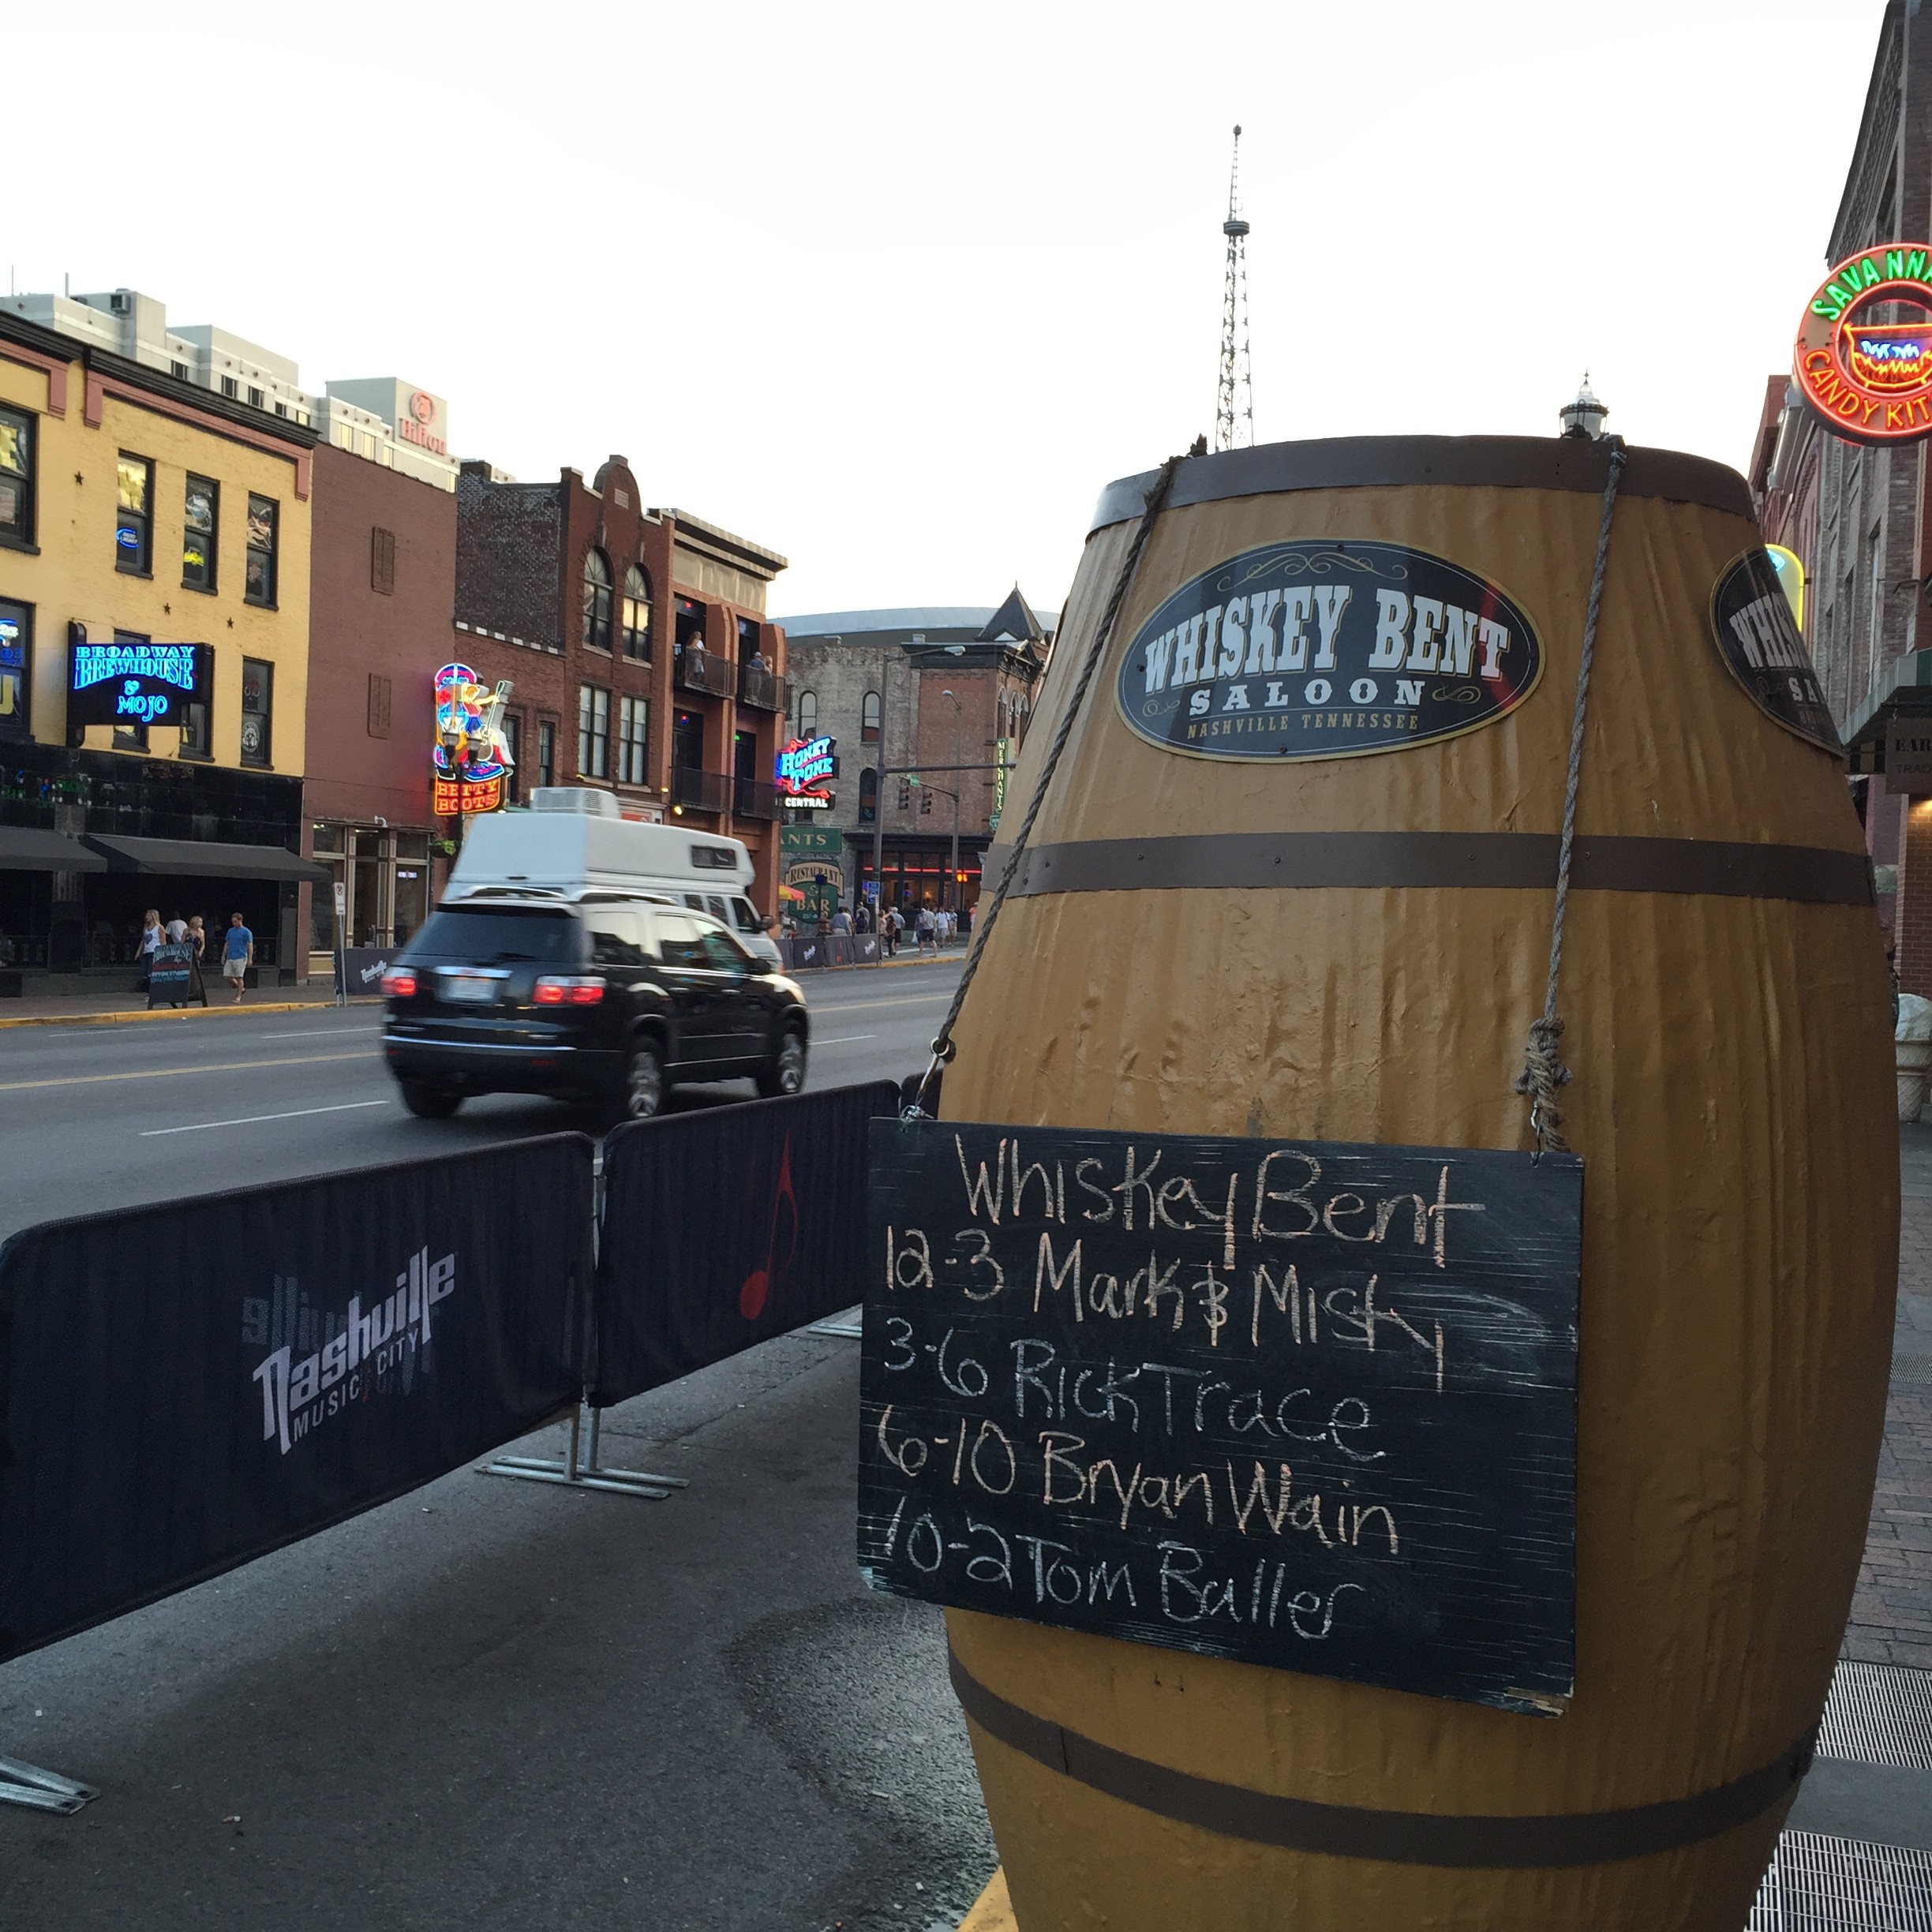 Hilton
BROADWAY
BREWHOUSE
&
MOJO
BETTY
BOOTS
HONKY
TONK
CENTRAL
MERCHANTS
ANTS
RESTAURANT
&
BAR
SAVANNA
CANDY KIT
WHISKEY BENT
SALOON
NASHVILLE TENNESSEE
WHIS
SA
EAR
TRAD
Nashville
MUSIC CITY
Nashville
Whiskey Bent
12-3 Mark & Misty
3-6 Rick Trace
6-10 Bryan Wain
10-2 Tom Buller